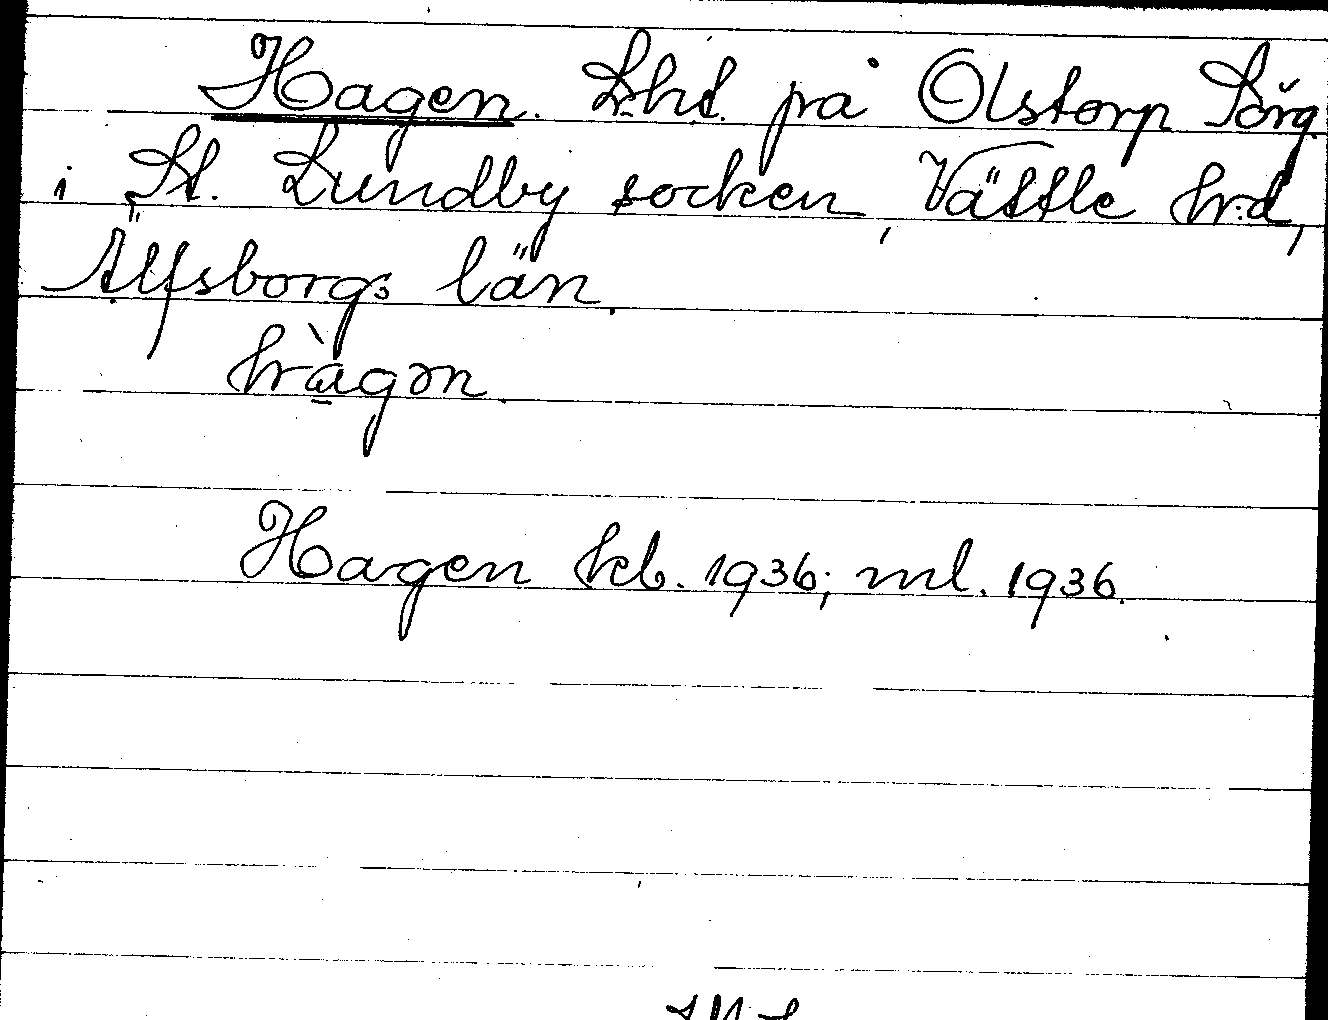 Hagen. Lht. på Olstorp Sörg.
i St. Lundby socken, Vättle hrd,
Älfsborgs län.
hràgən.
Hagen kb. 1936; ml. 1936.